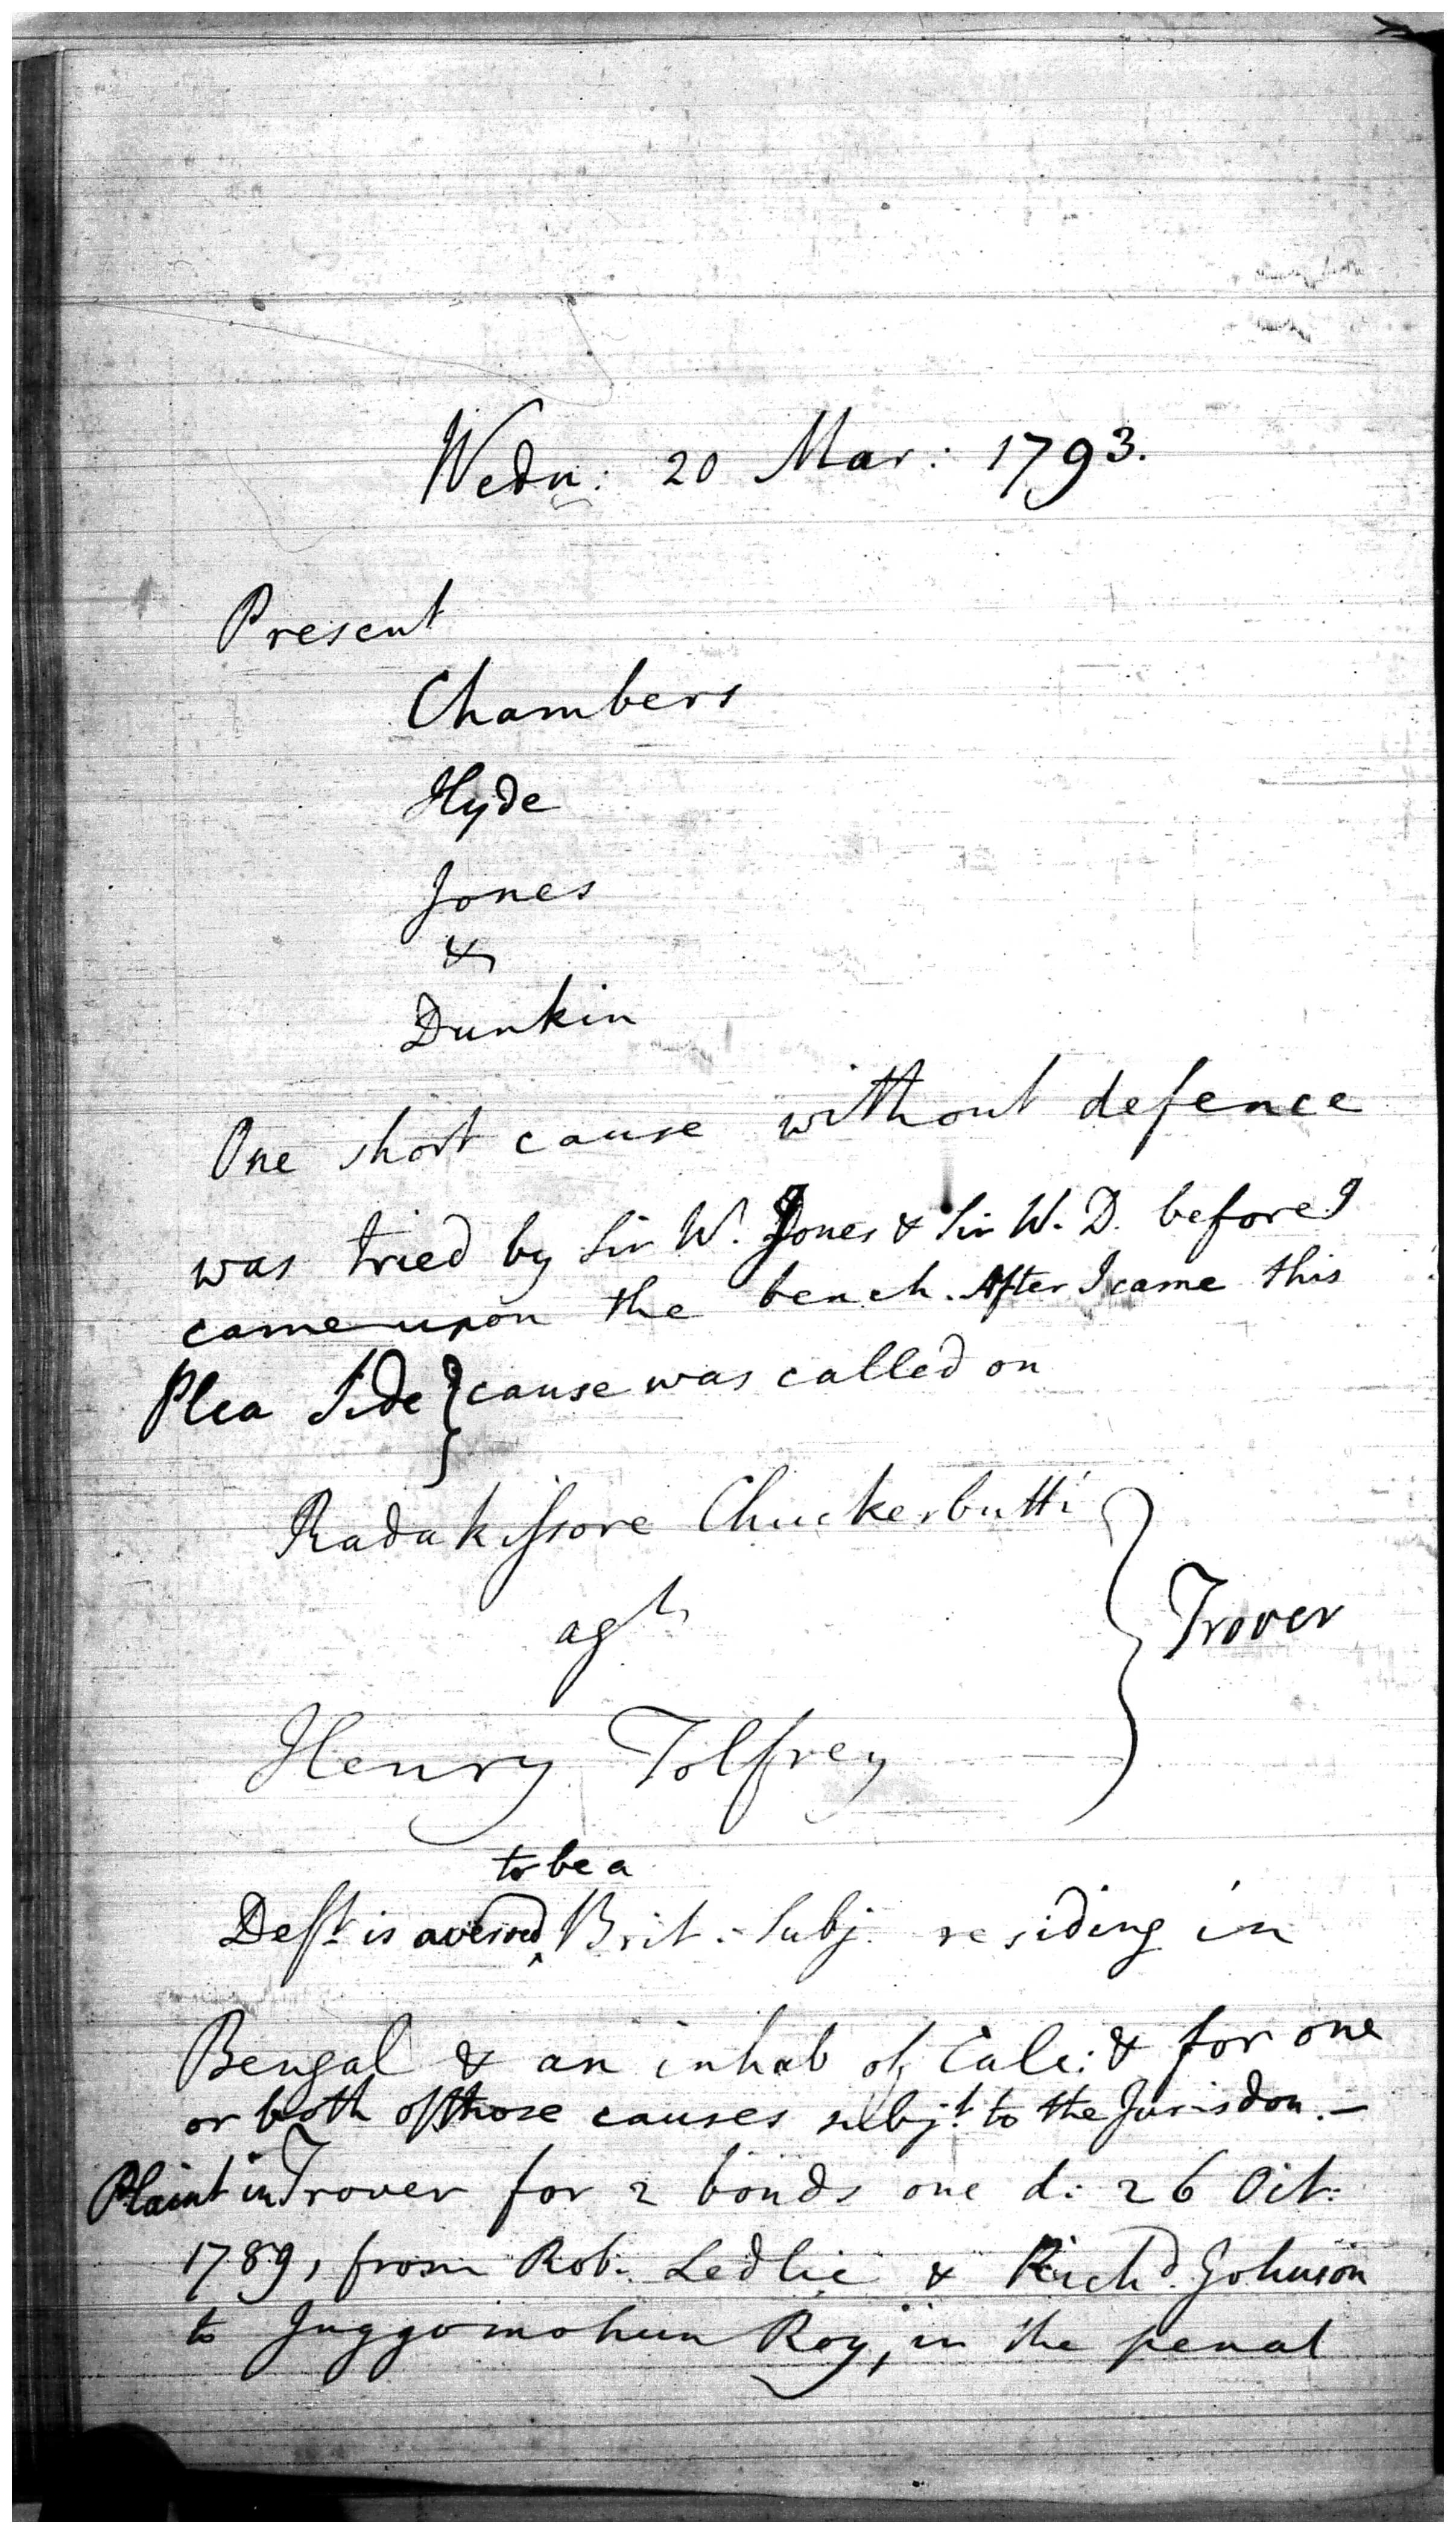 Wedn: 20 Mar: 1793.
Present
Chambers
Hyde
Jones
&
Dunkin
One short cause without defence
was tried by Sir W. Jones & Sir W. D. before I
came upon the bench. After I came this
Plea Side } cause was called on
Radakissore Chuckerbutti
agt
Henry Tolfrey
} Trover
to be a
Deft. is averred ^ Brit. Subj. residing in
Bengal & an inhab of Calc: & for one
or both of those causes subjt. to the Jurisdon. —
Plaint in Trover for 2 bonds one d: 26 Oct:
1789, from Rob. Ledlie & Richd. Johnson
to Juggomohun Roy, in the penal